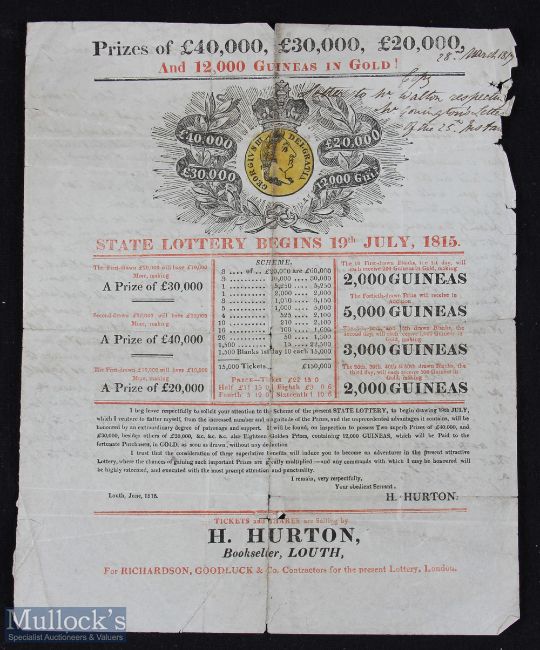 Prizes of £40,000, £30,000, £20,000,
And 12,000 GUINEAS IN GOLD!
28th March 181
Copy
letter to Mr Walton respecting
of the 25th Instant
£40,000
£30,000
GEORGIVS III DEI GRATIA
£20,000
12,000 Gui
STATE LOTTERY BEGINS 19th JULY, 1815.
The First-drawn £20,000 will have £10,000
More, making
A Prize of £30,000
Second-drawn £20,000 will have £20,000
More, making
A Prize of £40,000
A Prize of £20,000
SCHEME.
3 .... of .. £20,000 are £60,000
1 2,000 2,000
5 1,000 5,000
4 525 2,100
10 210 2,100
1,500 Blanks 1st day 10 each 15,000
15,000 Tickets. £150,000
PRICE—Ticket £22 15 0
Half £11 15 0 Eighth £3 0 6
Fourth 5 19 0 Sixteenth 1 10 6
The 10 First-drawn Blanks, 1st day, will
each receive 200 Guineas in Gold, making
2,000 GUINEAS
The Fortieth-drawn Prize will receive in
Addition
5,000 GUINEAS
3,000 GUINEAS
2,000 GUINEAS
I beg leave respectfully to solicit your attention to the Scheme of the present STATE LOTTERY, to begin drawing 19th JULY,
which I venture to flatter myself, from the increased number and magnitude of the Prizes, and the unprecedented advantages it contains, will be
honoured by an extraordinary degree of patronage and support. It will be found, on inspection to possess Two superb Prizes of £40,000, and
£30,000, besides others of £20,000, &c. &c. &c. also Eighteen Golden Prizes, containing 12,000 GUINEAS, which will be Paid to the
fortunate Purchasers, in GOLD, as soon as drawn, without any deduction.
I trust that the consideration of these superlative benefits will induce you to become an adventurer in the present attractive
Lottery, where the chances of gaining such important Prizes are greatly multiplied—and any commands with which I may be honoured will
be highly esteemed, and executed with the most prompt attention and punctuality.
I remain, very respectfully,
Your obedient Servant,
H. HURTON.
Louth, June, 1815.
TICKETS and SHARES are Selling by
H. HURTON,
Bookseller, LOUTH,
For RICHARDSON, GOODLUCK & Co. Contractors for the present Lottery, London.
Mullock's
Specialist Auctioneers & Valuers